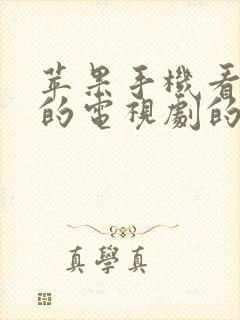 苹果手機看
的電視劇的
真學真